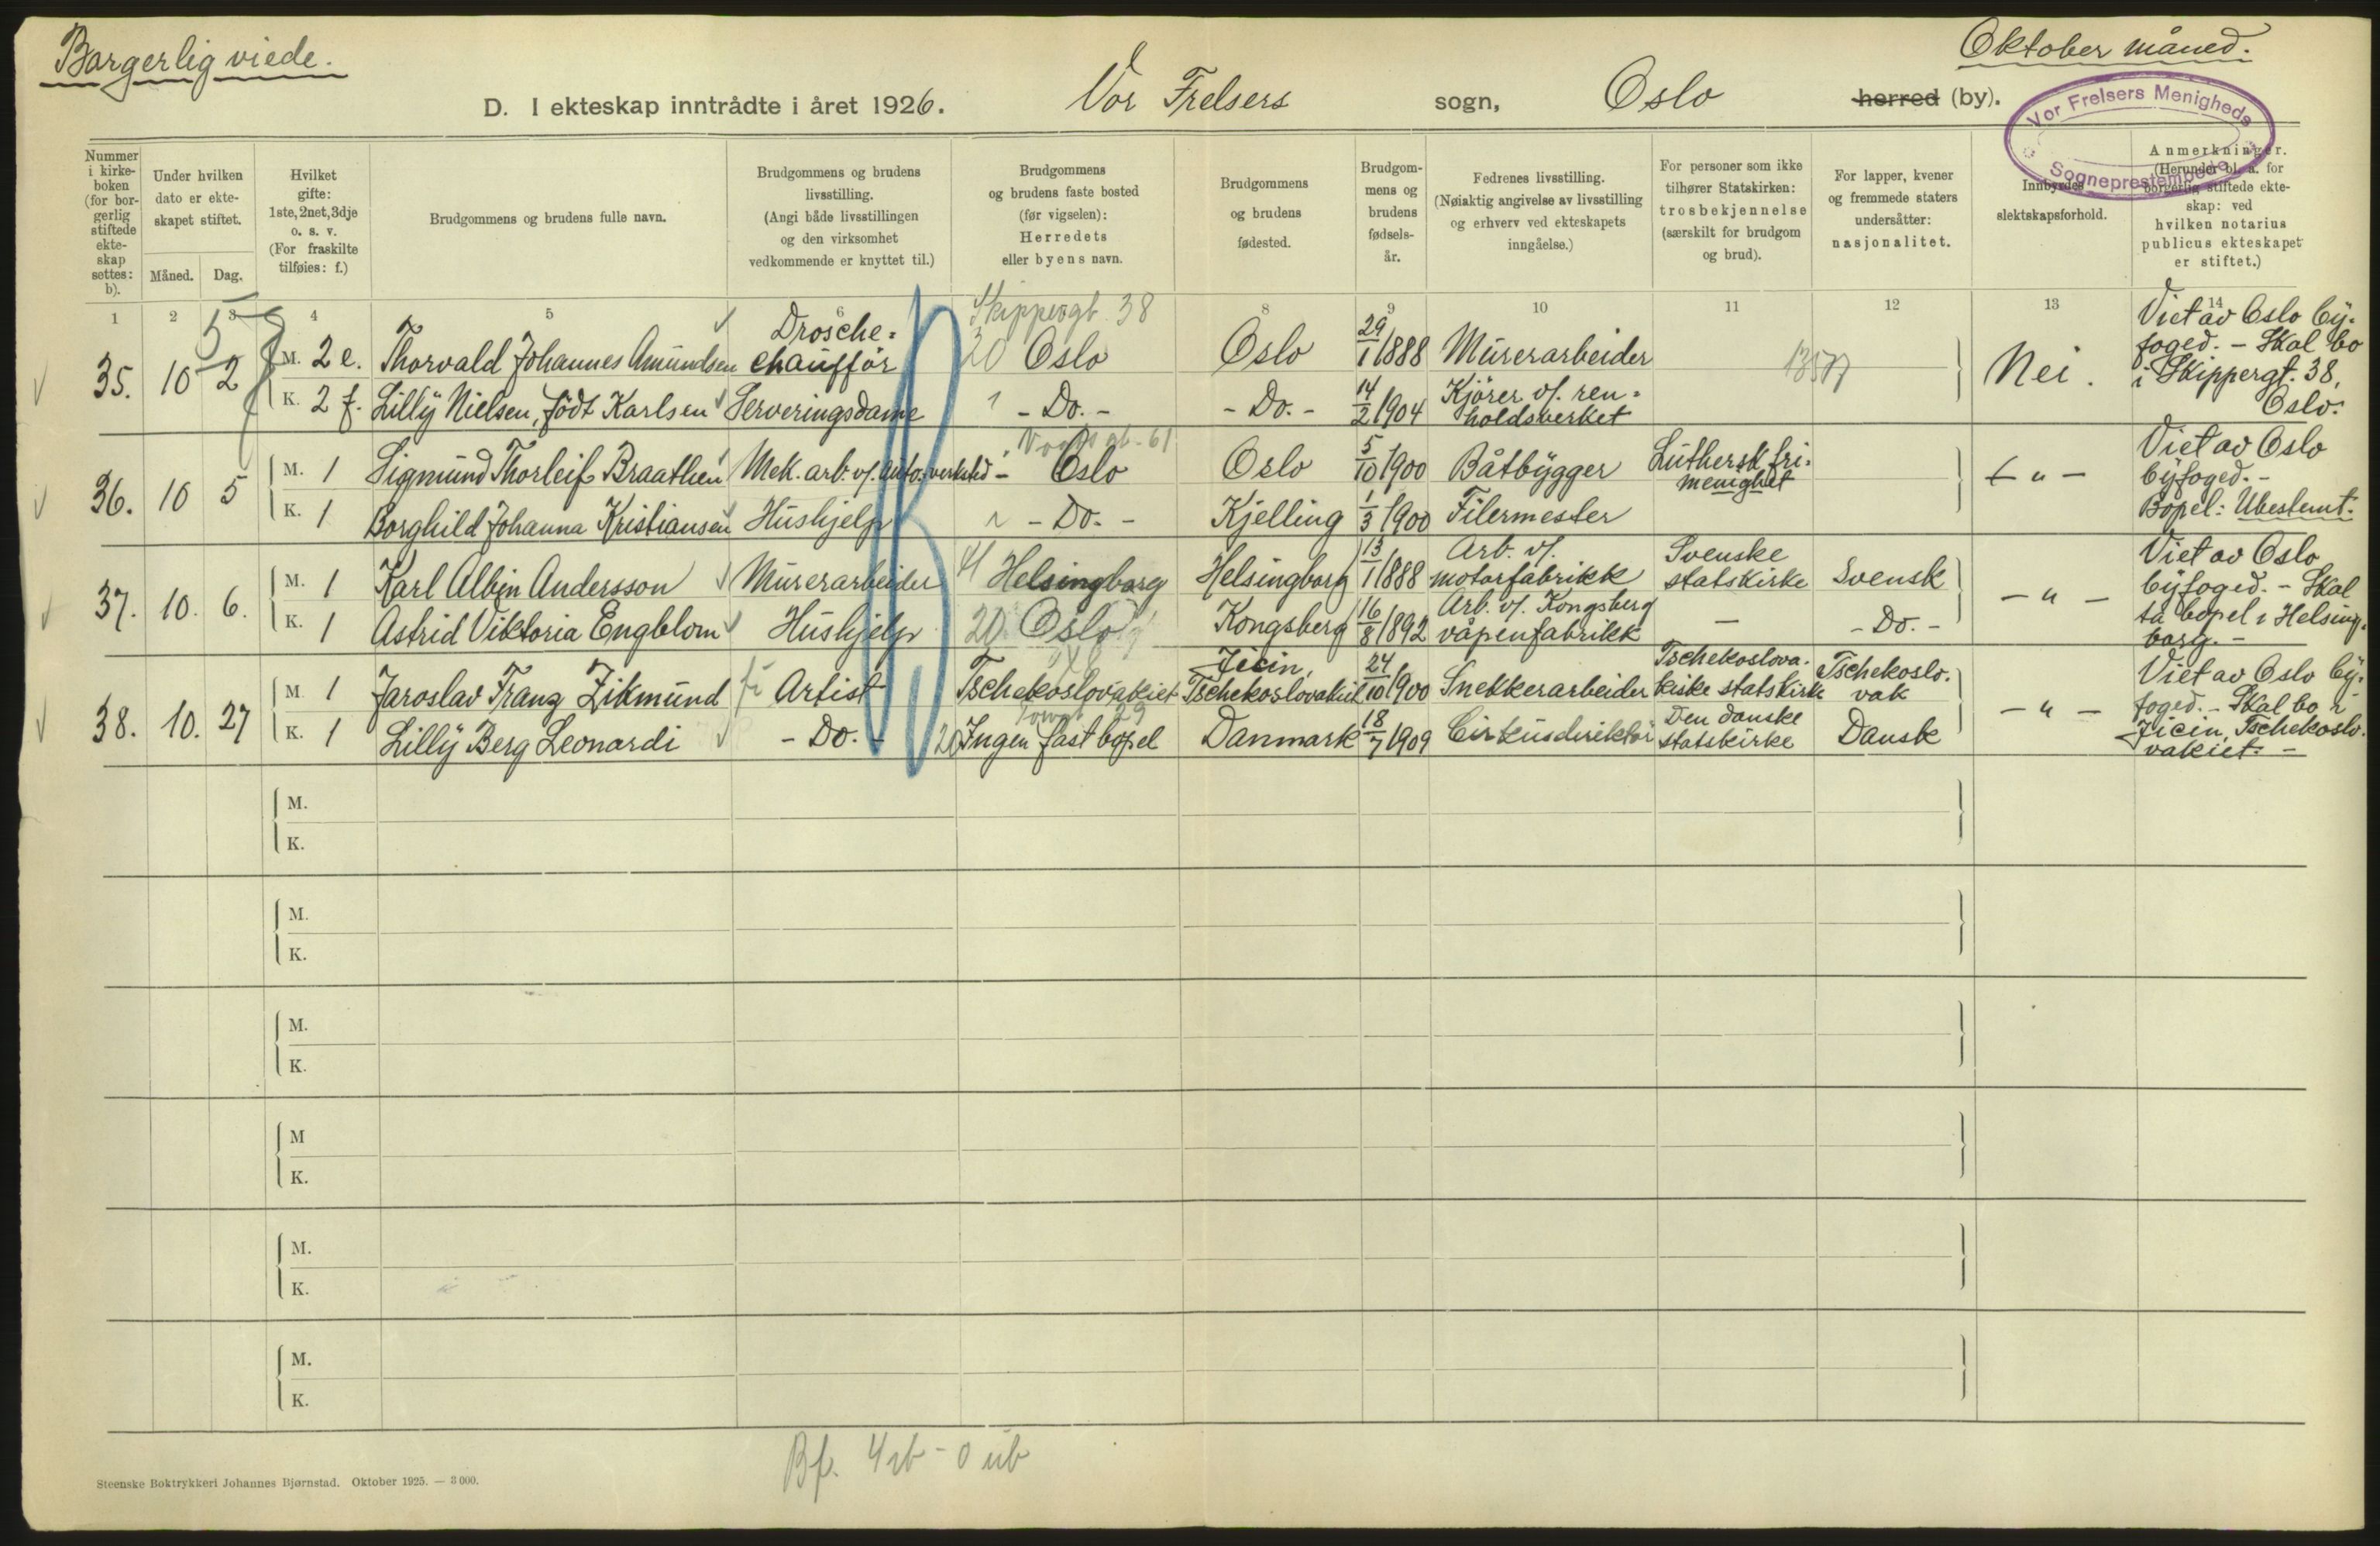 Borgerlig viede.
Oktober måned.
D. I ekteskap inntrådte i året 1926. Vor Frelsers sogn, Oslo herred (by).
Vor Frelsers Menigheds
Sogneprestembede
Nummer i kirke-boken (for bor-gerlig stiftede ekte-skap settes: b).
Under hvilken dato er ekte-skapet stiftet.
Måned. Dag.
Hvilket gifte: 1ste, 2net, 3dje o. s. v. (For fraskilte tilføies: f.)
Brudgommens og brudens fulle navn.
Brudgommens og brudens livsstilling. (Angi både livsstillingen og den virksomhet vedkommende er knyttet til.)
Brudgommens og brudens faste bosted (før vigselen): Herredets eller byens navn.
Brudgommens og brudens fødested.
Brudgom-mens og brudens fødsels-år.
Fedrenes livsstilling. (Nøiaktig angivelse av livsstilling og erhverv ved ekteskapets inngåelse.)
For personer som ikke tilhører Statskirken: trosbekjennelse (særskilt for brudgom og brud).
For lapper, kvener og fremmede staters undersåtter: nasjonalitet.
Innbyrdes slektskapsforhold.
Anmerkninger. (Herunder bl. a. for borgerlig stiftede ekte-skap: ved hvilken notarius publicus ekteskapet er stiftet.)
1 2 3 4 5 6 8 9 10 11 12 13 14
Skippergt. 38
35. 10 2 5
M. 2 e. Thorvald Johannes Amundsen Drosche-chaufför 20 Oslo Oslo 29/1 1888 Murerarbeider
K. 2 f. Lilly Nielsen, född Karlsen Serveringsdame - Do. - - Do. - 14/2 1904 Kjörer v/. ren-holdsverket
Nei.
Viet av Oslo by-foged. - Skal bo i Skippergt. 38, Oslo.
36. 10 5
M. 1 Sigmund Thorleif Braathen Mek. arb. v/. auto.verksted - Oslo Oslo 5/10 1900 Båtbygger Luthersk fri-menighet
K. 1 Borghild Johanna Kristiansen Hushjelp - Do. - Kjelling 1/3 1900 Filermester
- " -
Viet av Oslo byfoged. - Bopel: Ubestemt.
37. 10. 6.
M. 1 Karl Albin Andersson Murerarbeider Helsingborg Helsingborg 13/1 1888 Arb. v/. motorfabrikk Svenske statskirke Svensk
K. 1 Astrid Viktoria Engblom Hushjelp 20 Oslo Kongsberg 16/8 1892 Arb. v/. Kongsberg våpenfabrikk - - Do. -
- " -
Viet av Oslo byfoged. - Skal ta bopel i Helsing-borg. -
38. 10. 27
M. 1 Jaroslav Franz Zikmund Artist Tschekoslovakiet Jicin, Tschekoslovakiet 24/10 1900 Snekkerarbeider Tschekoslova-kiske statskirke Tschekoslo-vak
K. 1 Lilly Berg Leonardi - Do. - 20 Ingen fast bopel Danmark 18/7 1909 Cirkusdirektör Den danske statskirke Dansk
- " -
Viet av Oslo by-foged. - Skal bo i Jicin, Tschekoslo-vakiet. -
M.
K.
M.
K.
M.
K.
M
K.
M.
K.
M.
K.
Steenske Boktrykkeri Johannes Bjørnstad. Oktober 1925. — 3 000.